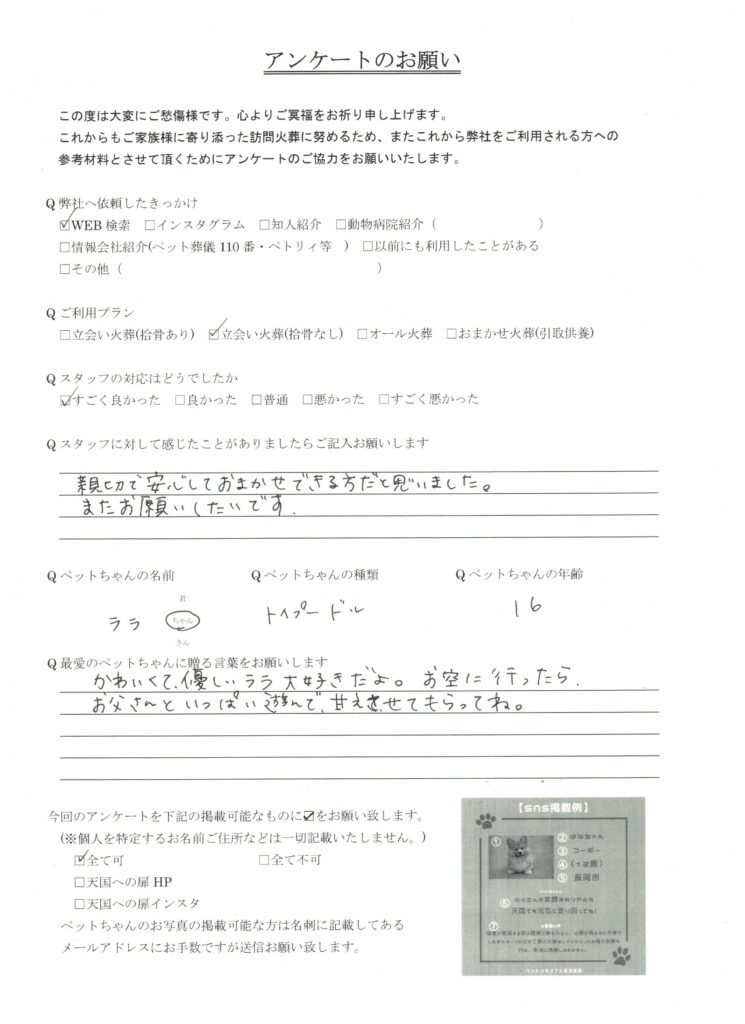 アンケートのお願い
この度は大変にご愁傷様です。心よりご冥福をお祈り申し上げます。
これからもご家族様に寄り添った訪問火葬に努めるため、またこれから弊社をご利用される方への
参考材料とさせて頂くためにアンケートのご協力をお願いいたします。
Q 弊社へ依頼したきっかけ
☑WEB 検索 □インスタグラム □知人紹介 □動物病院紹介（ ）
□情報会社紹介(ペット葬儀 110 番・ペトリィ等 ) □以前にも利用したことがある
□その他（ ）
Q ご利用プラン
□立会い火葬(拾骨あり) ☑立会い火葬(拾骨なし) □オール火葬 □おまかせ火葬(引取供養)
Q スタッフの対応はどうでしたか
☑すごく良かった □良かった □普通 □悪かった □すごく悪かった
Q スタッフに対して感じたことがありましたらご記入お願いします
親切で安心しておまかせできる方だと思いました。
またお願いしたいです.
Q ペットちゃんの名前 Q ペットちゃんの種類 Q ペットちゃんの年齢
君
ララ ちゃん トイプードル 16
さん
Q 最愛のペットちゃんに贈る言葉をお願いします
かわいくて、優しいララ大好きだよ。お空に行ったら、
お父さんといっぱい遊んで、甘えさせてもらってね。
今回のアンケートを下記の掲載可能なものに☑をお願い致します。
(※個人を特定するお名前ご住所などは一切記載いたしません。)
☑全て可 □全て不可
□天国への扉 HP
□天国への扉インスタ
ペットちゃんのお写真の掲載可能な方は名刺に記載してある
メールアドレスにお手数ですが送信お願い致します。
【sns掲載例】
① ② はなちゃん
③ コーギー
④ （12歳）
⑤ 長岡市
⑥ たくさんの笑顔をありがとう
天国でも元気に走り回ってね！
⑦